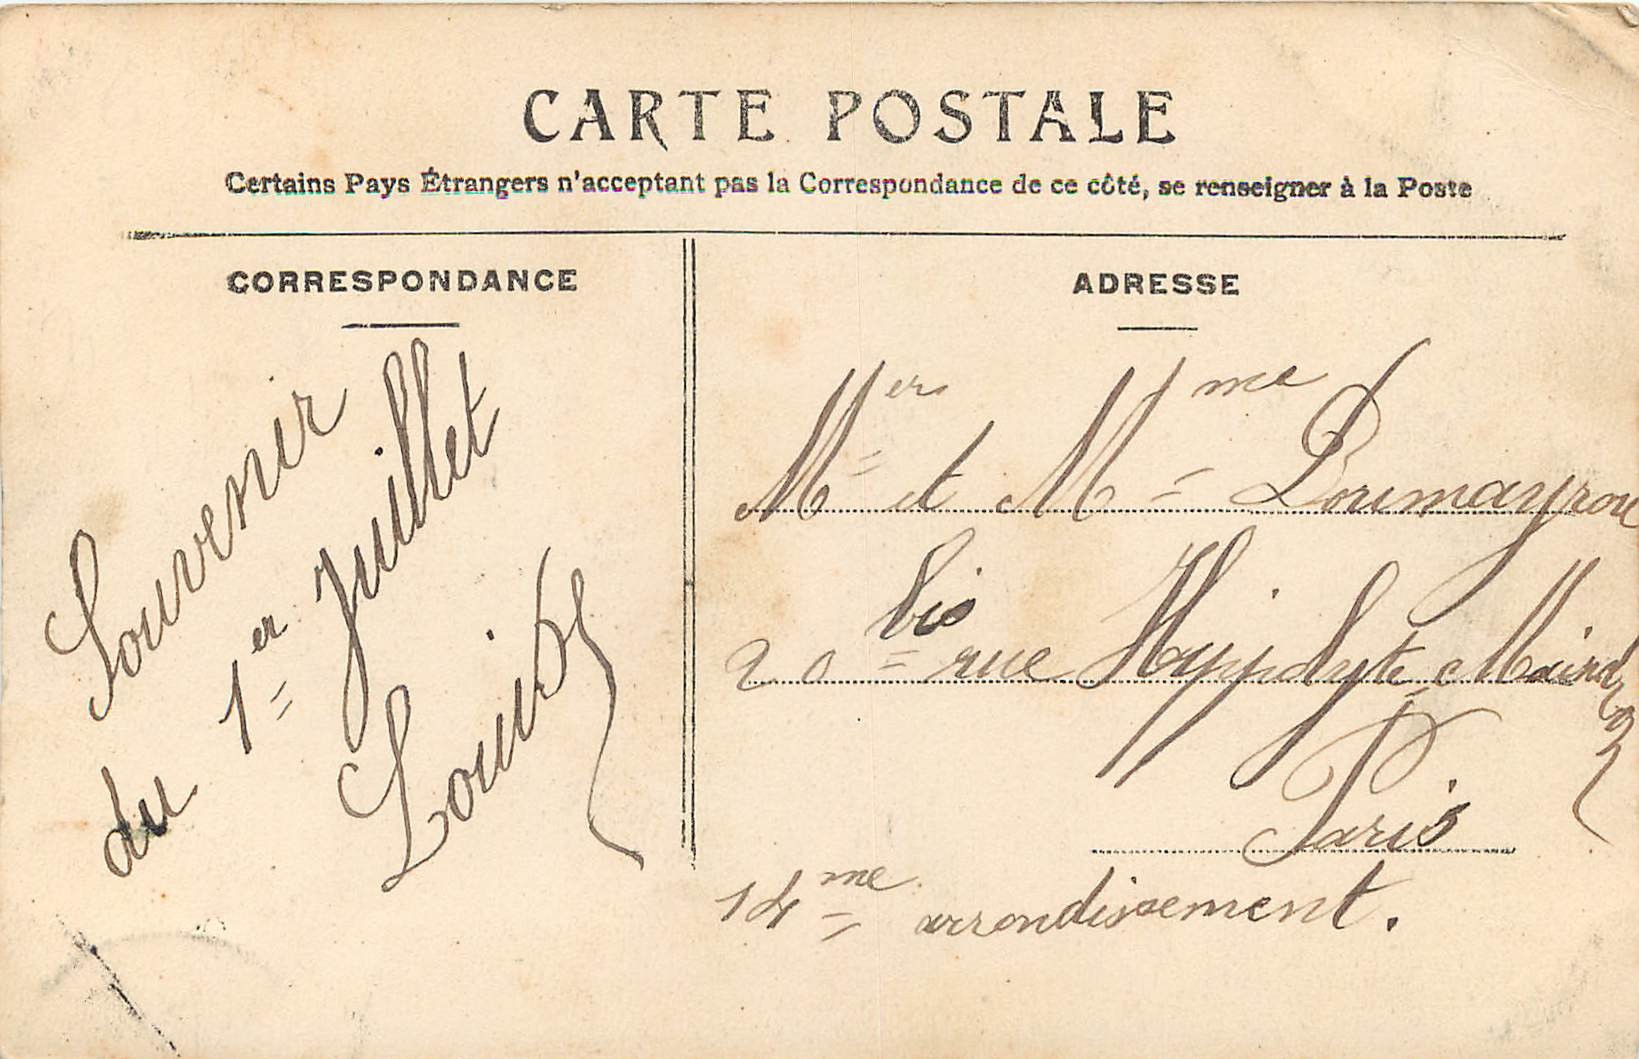 CARTE POSTALE
Certains Pays Étrangers n'acceptant pas la Correspondance de ce côté, se renseigner à la Poste
CORRESPONDANCE
Souvenir
du 1er Juillet
Louis
ADRESSE
Mer et Mme Doumayrou
20 bis rue Hyppolyte Maindron
Paris
14me arrondissement.